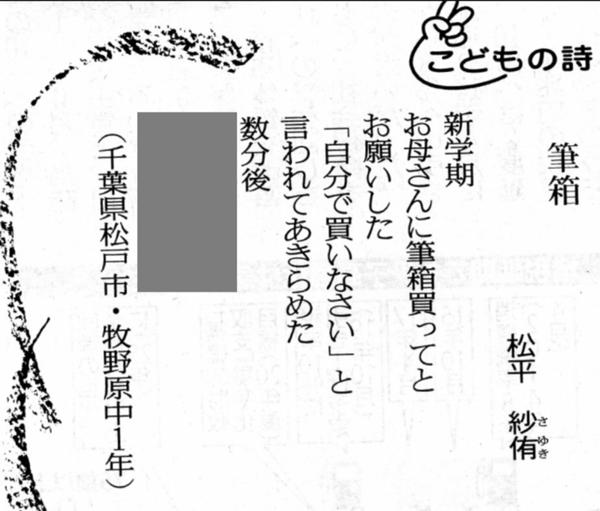 こどもの詩
筆箱
松平 紗侑
さゆき
新学期
お母さんに筆箱買ってと
お願いした
「自分で買いなさい」と
言われてあきらめた
数分後
（千葉県松戸市・牧野原中1年）